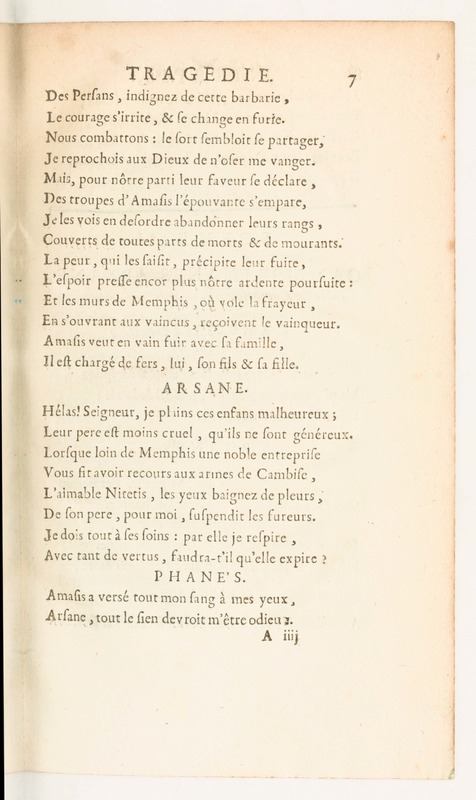 TRAGEDIE. 7
Des Perſans, indignez de cette barbarie,
Le courage s'irrite, & ſe change en furie.
Nous combattons : le ſort ſembloit ſe partager,
Je reprochois aux Dieux de n'oſer me vanger.
Mais, pour nôtre parti leur faveur ſe déclare,
Des troupes d'Amaſis l'épouvante s'empare,
Je les vois en deſordre abandonner leurs rangs,
Couverts de toutes parts de morts & de mourants.
La peur, qui les ſaiſit, précipite leur fuite,
L'eſpoir preſſe encor plus nôtre ardente pourſuite :
Et les murs de Memphis, où vole la frayeur,
En s'ouvrant aux vaincus, reçoivent le vainqueur.
Amaſis veut en vain fuir avec ſa famille,
Il eſt chargé de fers, lui, ſon fils & ſa fille.
ARSANE.
Hélas! Seigneur, je plains ces enfans malheureux ;
Leur pere eſt moins cruel, qu'ils ne ſont généreux.
Lorſque loin de Memphis une noble entrepriſe
Vous fit avoir recours aux armes de Cambiſe,
L'aimable Nitetis, les yeux baignez de pleurs,
De ſon pere, pour moi, ſuſpendit les fureurs.
Je dois tout à ſes ſoins : par elle je reſpire,
Avec tant de vertus, faudra-t'il qu'elle expire ?
PHANE'S.
Amaſis a verſé tout mon ſang à mes yeux,
Arſane, tout le ſien devroit m'être odieux.
A iiij